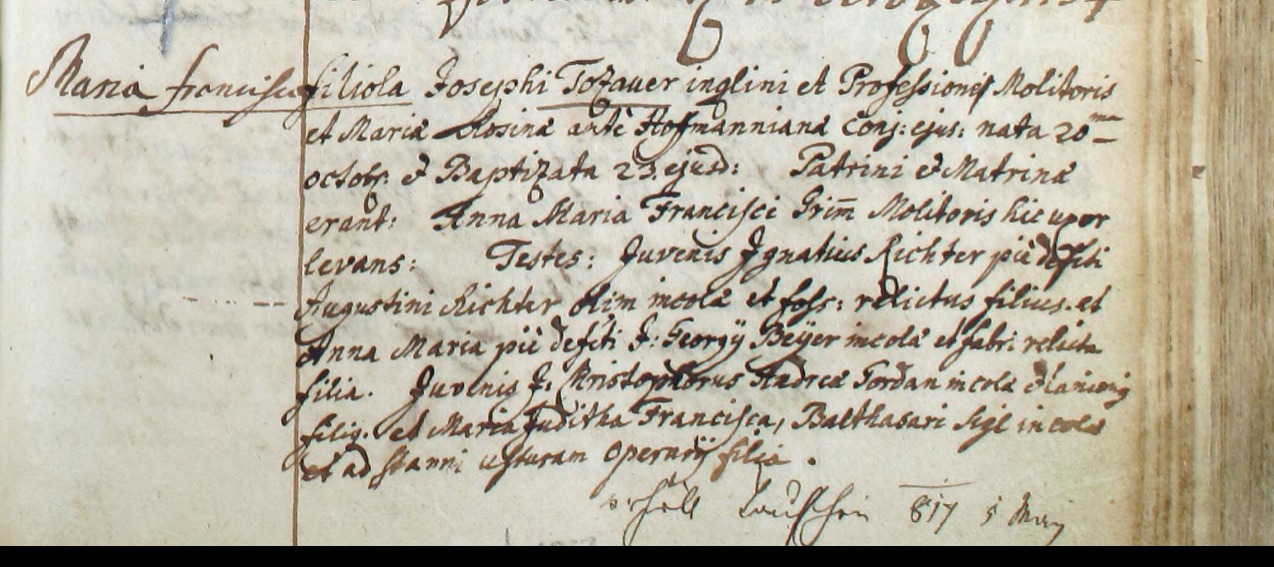 Maria Francisca filiola Josephi Tozauer inqlini et Professionis Molitoris
et Mariæ Rosinæ antè Hofmannianæ conj: ejus: nata 20ma
octobr: et Baptizata 23 ejusd: Patrini et Matrinæ
erant: Anna Maria Francisci Grim̄ Molitoris hic uxor
levans: Testes: Juvenis Ignatius Richter piè defcti
Augustini Richter olim incolæ et foss: relictus filius. et
Anna Maria piè defcti J: Georgÿ Beÿer incolæ et fabri relicta
filia. Juvenis J: Christophorus Andreæ Jordan incolæ et lanionis
filius. et Maria Juditha Francisca, Balthasari Sigl incolæ
et ad stanni usturam operarÿ filia.
817 5 May